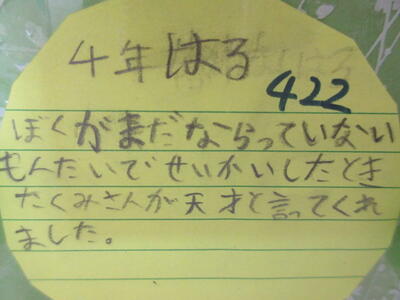 4年はる
422
ぼくがまだならっていない
もんたいでせいかいしたとき
たくみさんが天才と言ってくれ
ました。